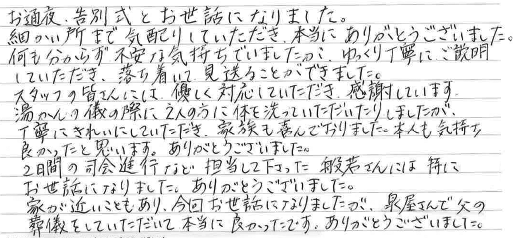 お通夜、告別式とお世話になりました。
細かい所まで気配りしていただき、本当にありがとうございました。
何も分からず不安な気持ちでいましたが、ゆっくり丁寧にご説明
していただき、落ち着いて見送ることができました。
スタッフの皆さんには、優しく対応していただき、感謝しています。
湯かんの儀の際に2人の方に体を洗っていただいたりしましたが、
丁寧にきれいにしていただき、家族も喜んでおりました。本人も気持ち
良かったと思います。ありがとうございました。
2日間の司会進行など担当して下さった般若さんには特に
お世話になりました。ありがとうございました。
家が近いこともあり、今回お世話になりましたが、泉屋さんで父の
葬儀をしていただいて本当に良かったです。ありがとうございました。